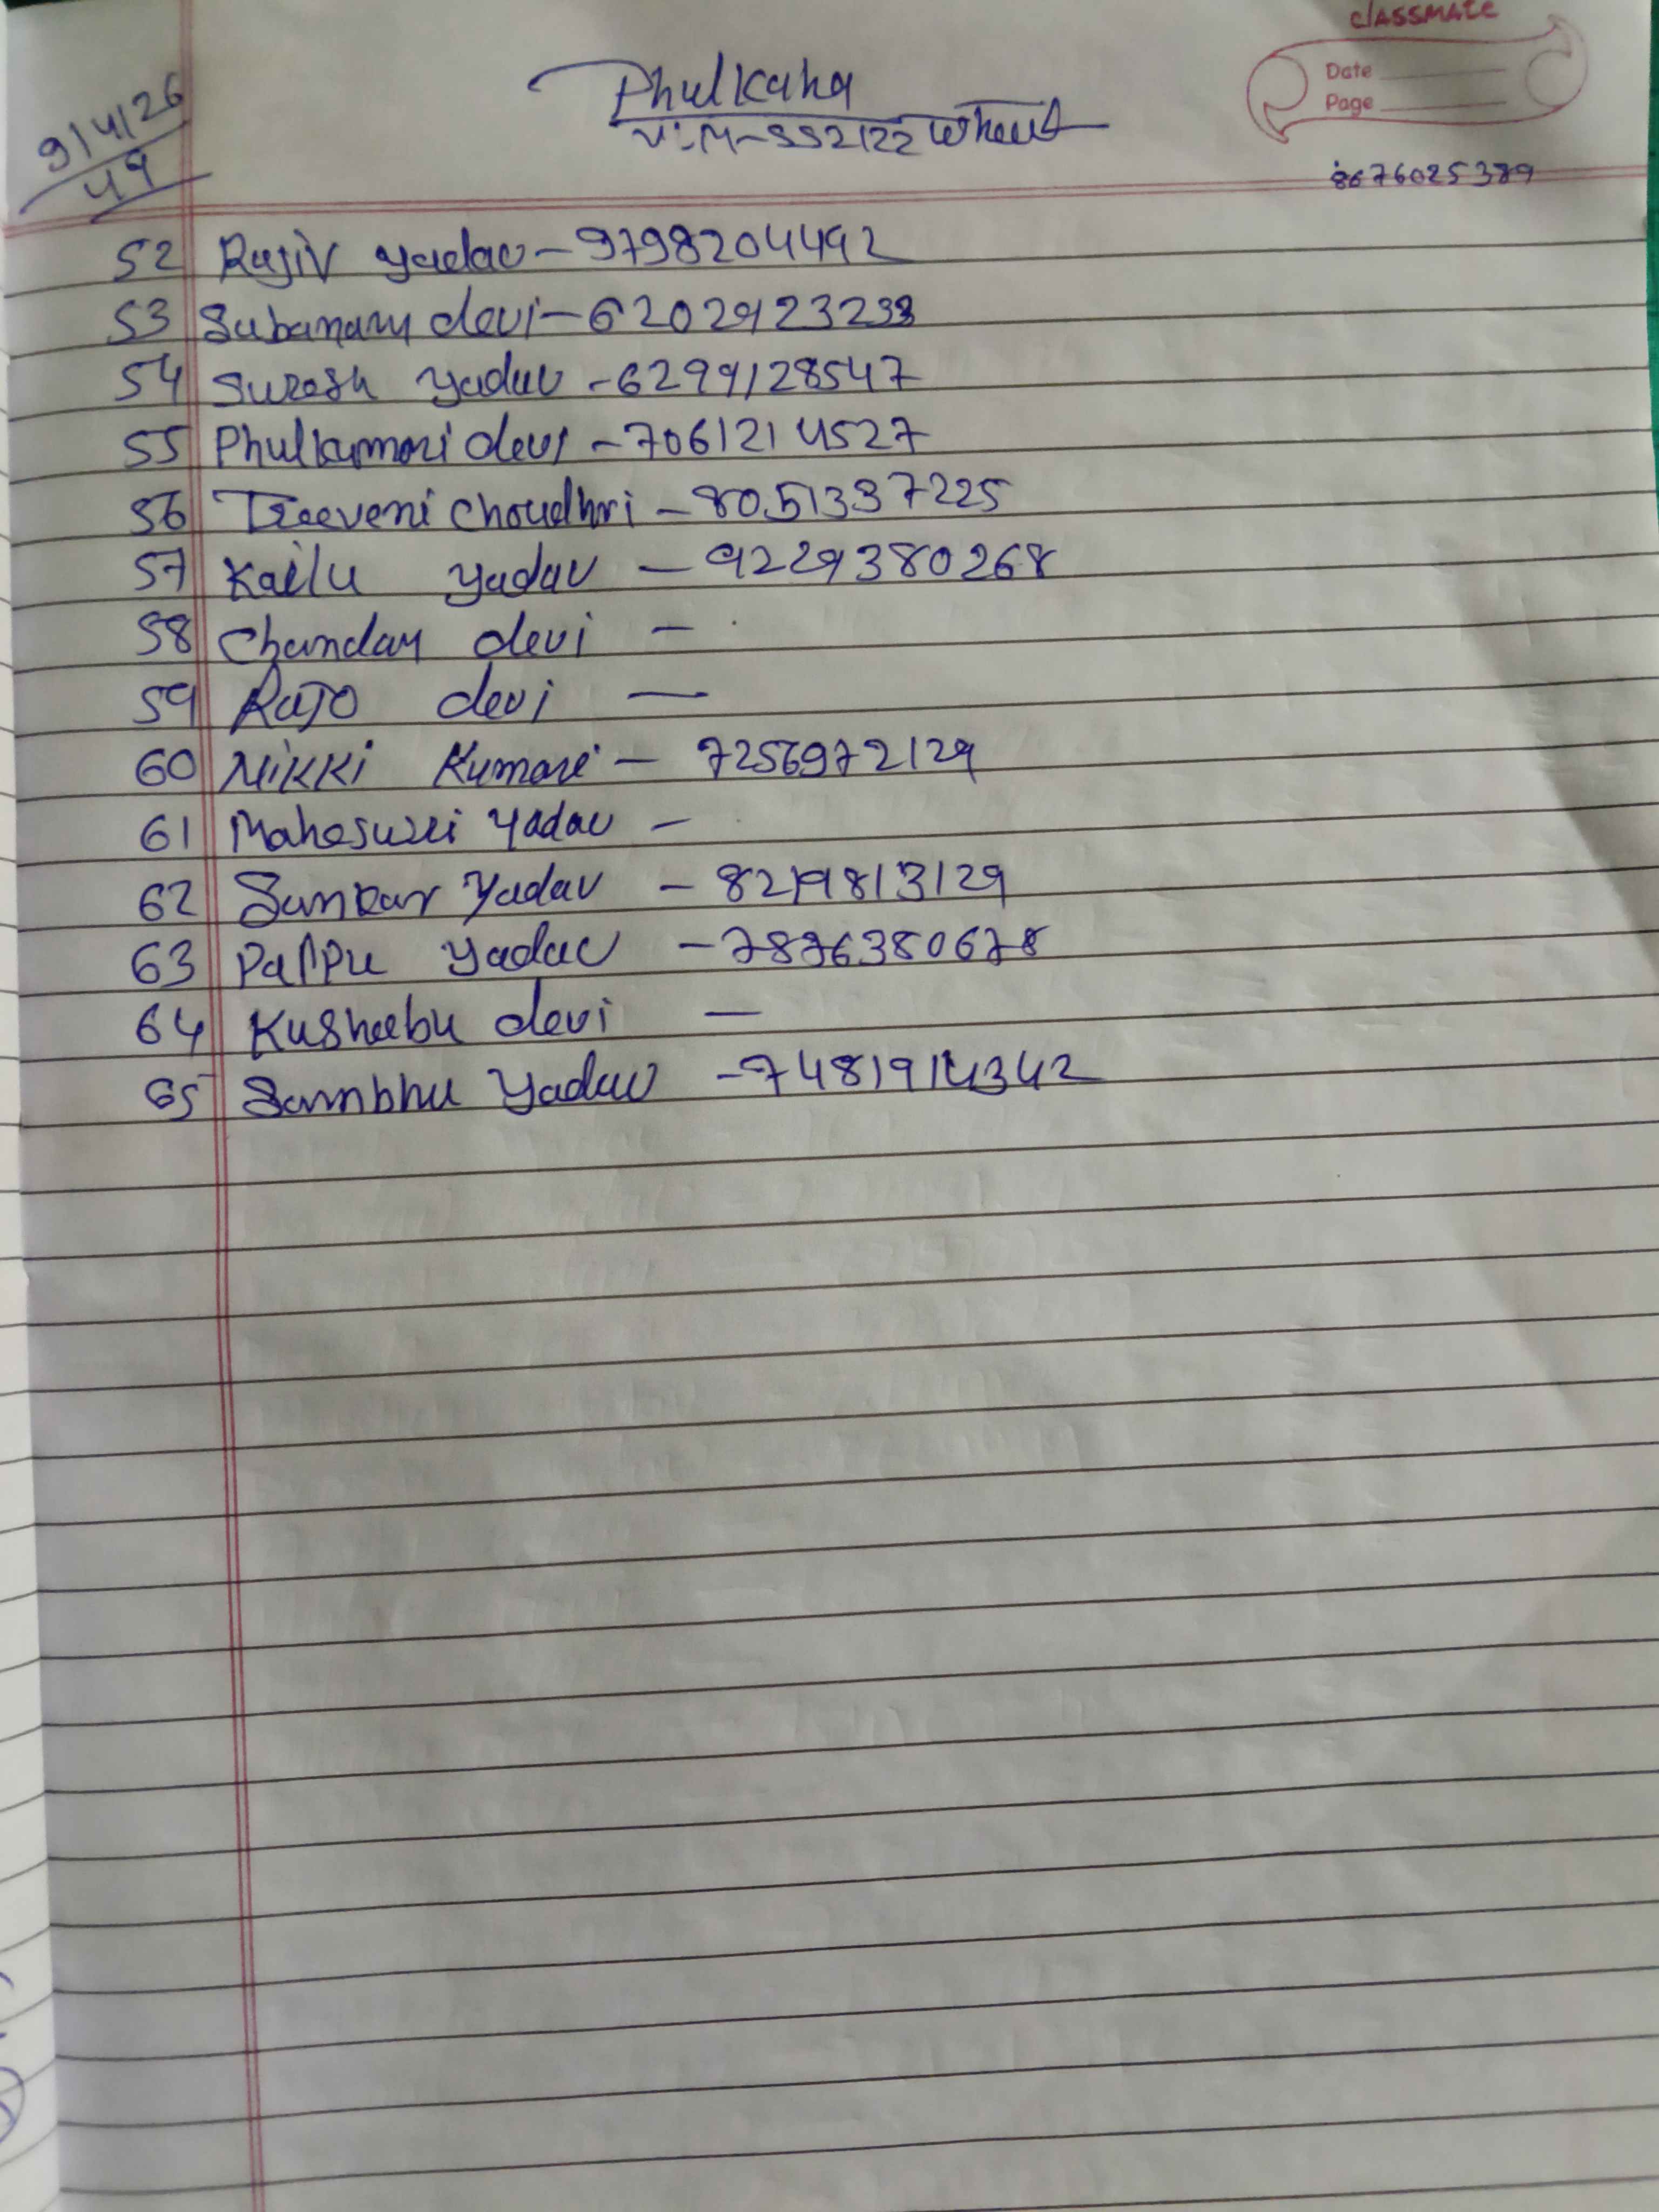 classmate
Date
Page
9/4/26
49
Phulkaha
V:-M-SS2122 Wheat
8676025389
52 Rajiv yadav - 9798204492
53 Subanam devi - 6202923233
54 Suresh yadav - 6299128547
55 Phulkumari devi - 7061214527
56 Treeveni Choudhri - 8051337225
57 Kailu yadav - 9229380268
58 Chandan devi -
59 RaJo devi -
60 Nikki Kumari - 7256972129
61 Maheswri Yadav -
62 Sankar Yadav - 8219813129
63 Pappu Yadav - 7896380678
64 Kusheebu devi -
65 Sambhu Yadav - 7481914342